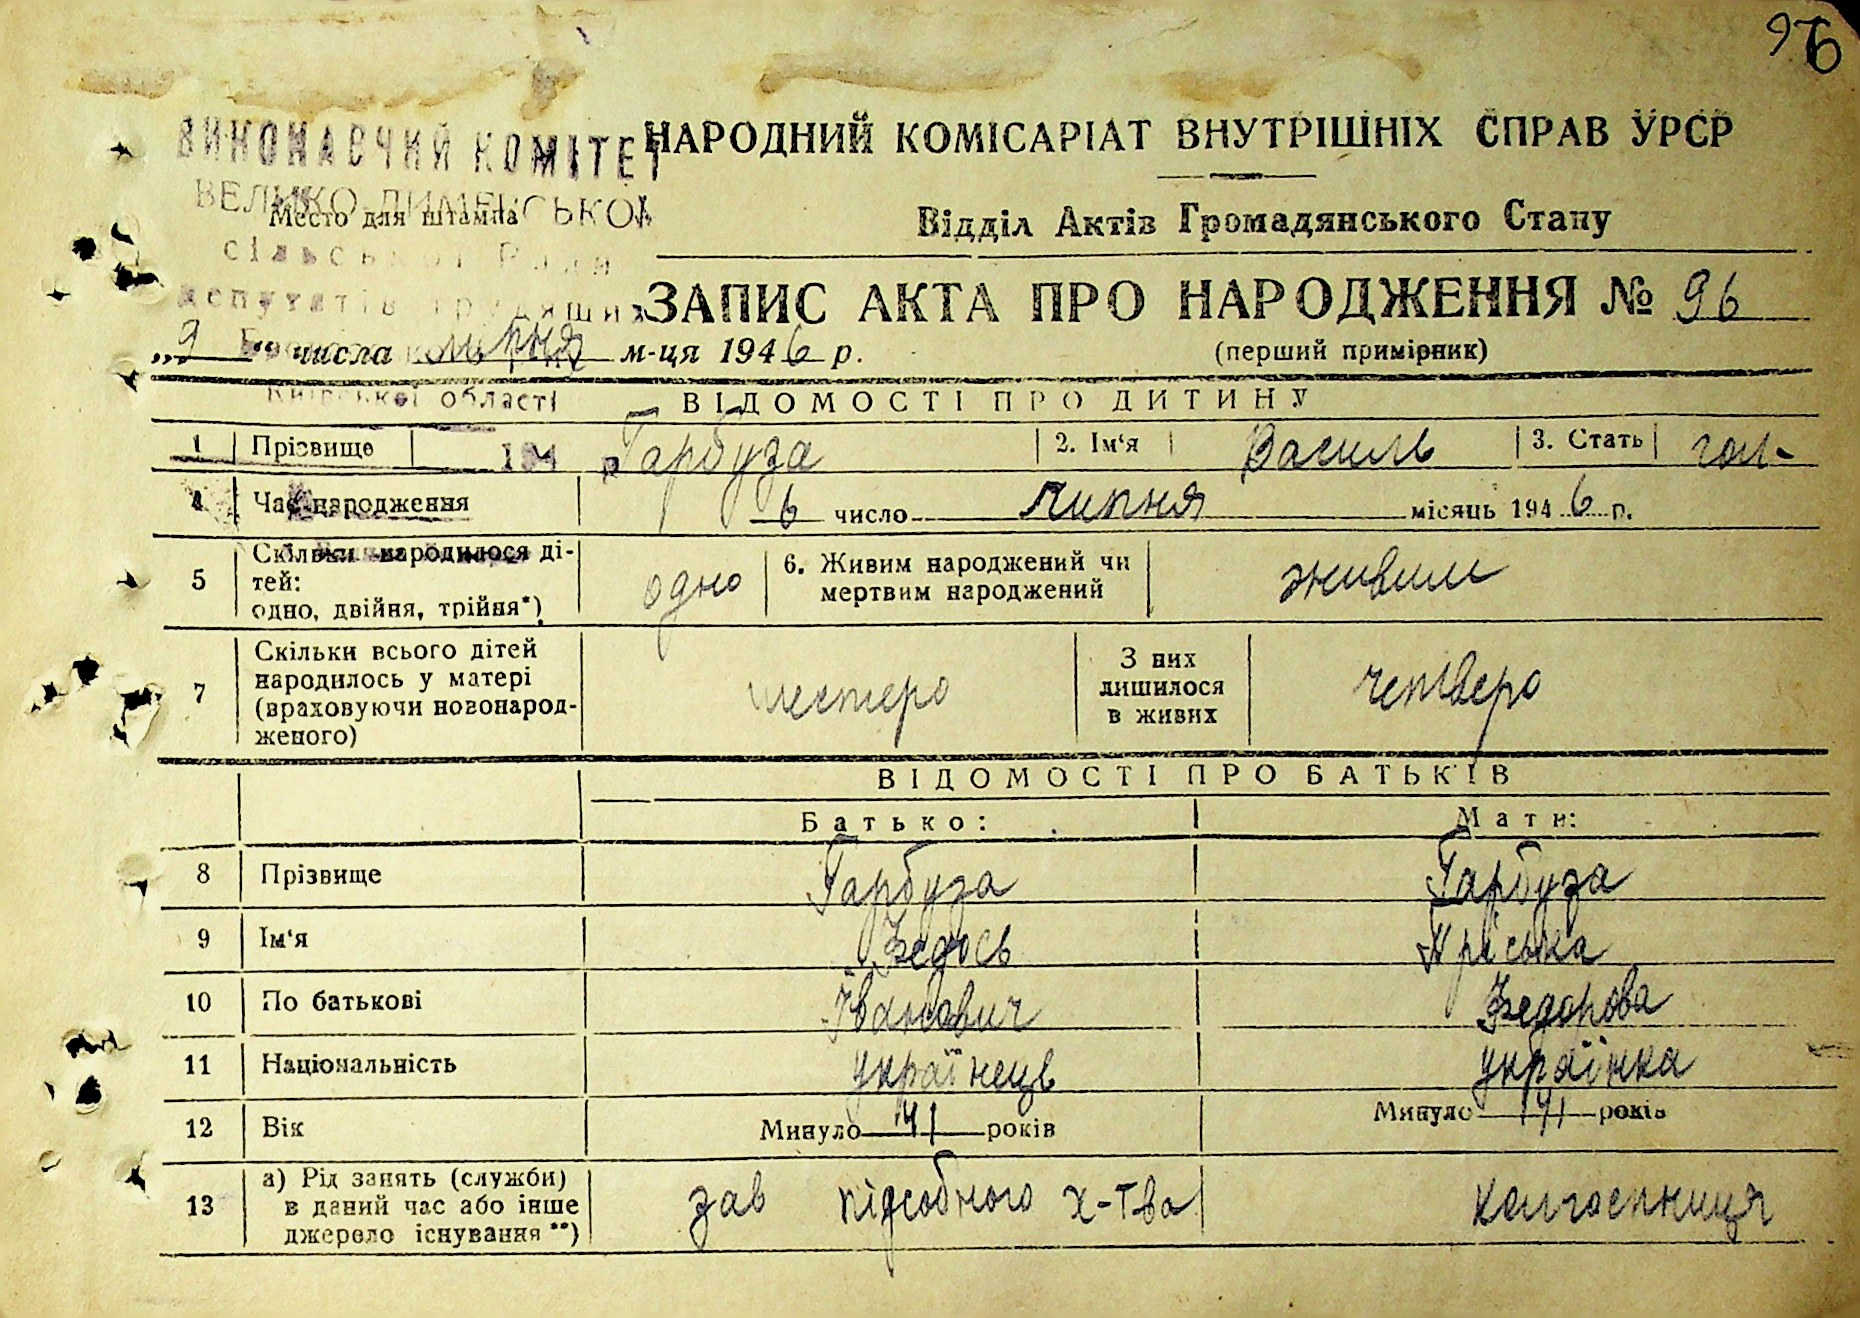 96
ВИКОНАВЧИЙ КОМІТЕТ
НАРОДНИЙ КОМІСАРІАТ ВНУТРІШНІХ СПРАВ УРСР
ВЕЛИКО-ДИМЕРСЬКОЇ
Место для штампа
Відділ Актів Громадянського Стану
сільської Ради
депутатів трудящих
ЗАПИС АКТА ПРО НАРОДЖЕННЯ № 96
„ 9 " числа липня м-ця 1946 р.
(перший примірник)
Київської області
ВІДОМОСТІ ПРО ДИТИНУ
1 Прізвище 194 р. Гарбуза 2. Ім'я Василь 3. Стать чол-
4 Час народження 6 число липня місяць 1946 р.
5 Скільки народилося дітей: одно, двійня, трійня*) одно 6. Живим народжений чи мертвим народжений живим
7 Скільки всього дітей народилось у матері (враховуючи новонародженого) шестеро З них лишилося в живих четверо
ВІДОМОСТІ ПРО БАТЬКІВ
Батько: Мати:
8 Прізвище Гарбуза Гарбуза
9 Ім'я Федось Пріська
10 По батькові Іванович Федорова
11 Національність українець українка
12 Вік Минуло 41 років Минуло 41 років
13 а) Рід занять (служби) в даний час або інше джерело існування **) зав підсобного х-тва колгоспниця